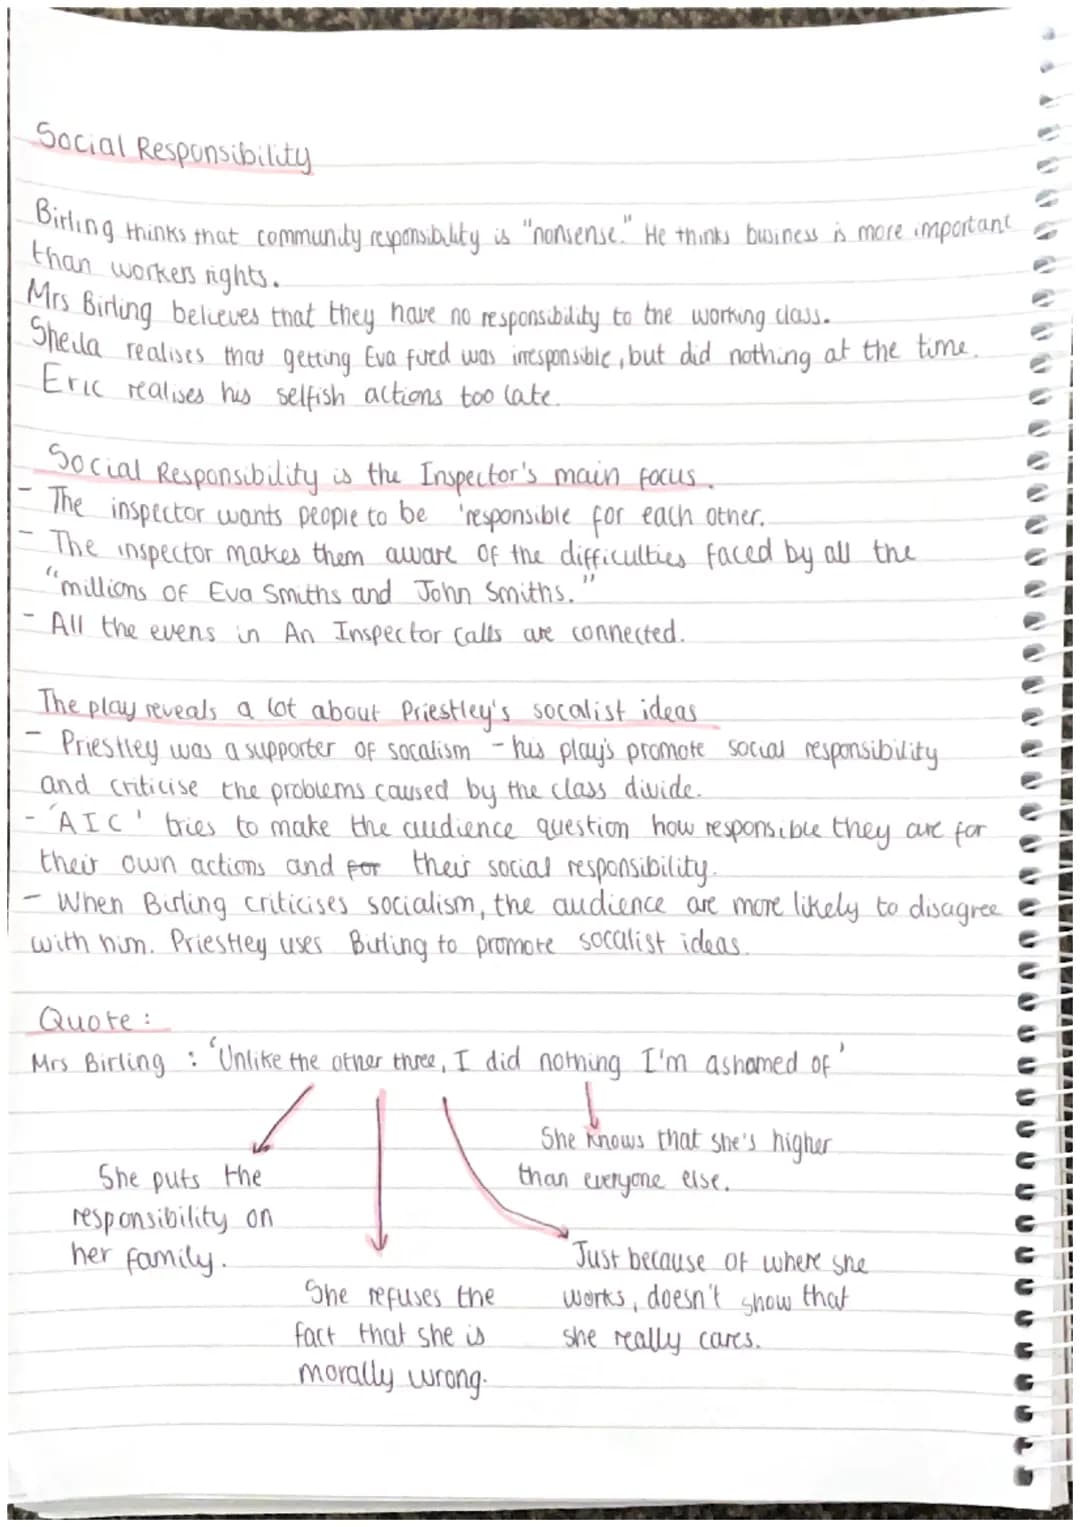 Social Responsibility
Birling thinks that community responsibility is "nonsense." He thinks business is more important
than workers rights.
Mrs Birling believes that they have no responsibility to the working class.
Sheila realises that getting Eva fired was irresponsible, but did nothing at the time.
Eric realises his selfish actions too late.
Social Responsibility is the Inspector's main focus.
- The inspector wants people to be 'responsible for each other.
- The inspector makes them aware of the difficulties faced by all the
"millions of Eva Smiths and John Smiths."
- All the evens in An Inspector Calls are connected.
The play reveals a lot about Priestley's socalist ideas
- Priestley was a supporter of socalism - his play's promote social responsibility
and criticise the problems caused by the class divide.
- 'AIC' tries to make the audience question how responsible they are for
their own actions and for their social responsibility.
- When Birling criticises socialism, the audience are more likely to disagree
with him. Priestley uses Birling to promote socalist ideas.
Quote:
Mrs Birling : 'Unlike the other three, I did nothing I'm ashamed of'
She knows that she's higher
than everyone else.
She puts the
responsibility on
her family.
Just because of where she
works, doesn't show that
she really cares.
She refuses the
fact that she is
morally wrong.